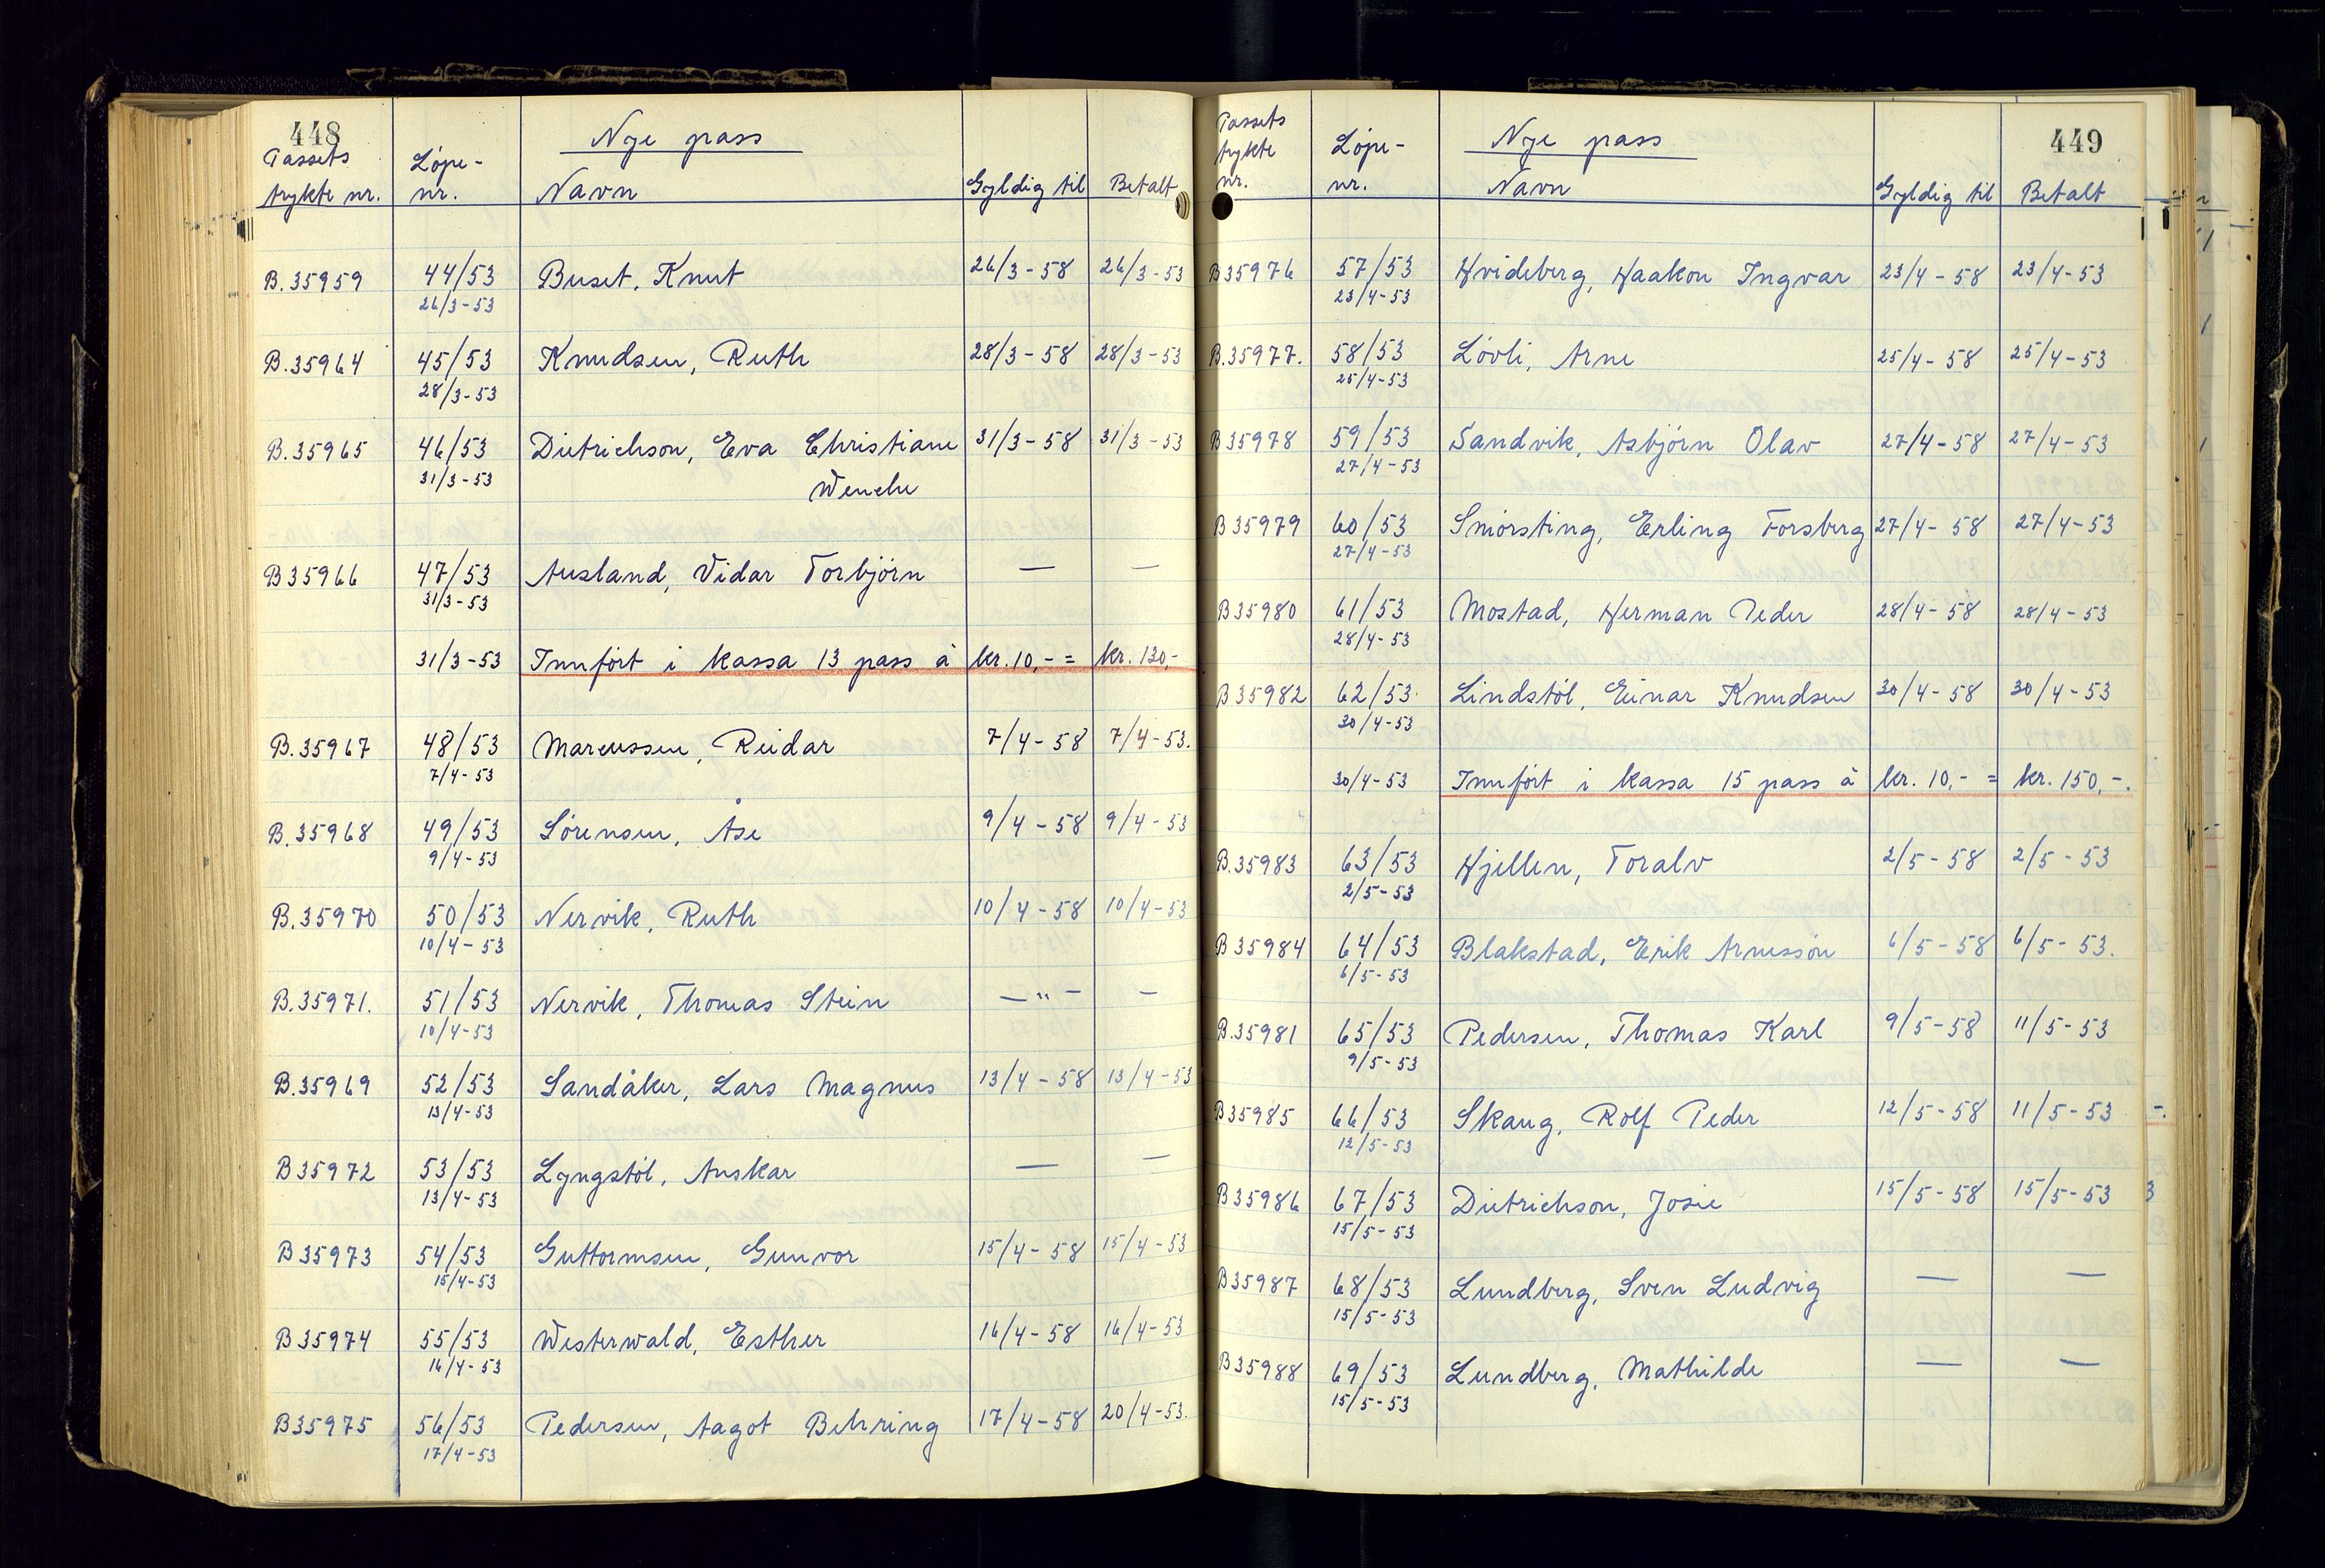 448
Passets Løpe- Nye pass
trykte nr. nr. Navn Gyldig til Betalt
B.35959 44/53 Buset, Knut 26/3-58 26/3-53
26/3-53
B.35964 45/53 Knudsen, Ruth 28/3-58 28/3-53
28/3-53
B.35965 46/53 Dietrichson, Eva Christiane 31/3-58 31/3-53
31/3-53 Wenche
B35966 47/53 Ausland, Vidar Torbjørn — —
31/3-53
31/3-53 Innført i kassa 13 pass à kr. 10,- = kr. 130,-
B.35967 48/53 Marcussen, Reidar 7/4-58 7/4-53.
7/4-53
B.35968 49/53 Sørensen, Åse 9/4-58 9/4-53
9/4-53
B.35970 50/53 Nervik, Ruth 10/4-58 10/4-53
10/4-53
B.35971. 51/53 Nervik, Thomas Stein —"— —
10/4-53
B.35969 52/53 Sandåker, Lars Magnus 13/4-58 13/4-53
13/4-53
B35972 53/53 Lyngstøl, Anskar — —
13/4-53
B35973 54/53 Guttormsen, Gunvor 15/4-58 15/4-53
15/4-53
B35974 55/53 Westerwald, Esther 16/4-58 16/4-53
16/4-53
B35975 56/53 Pedersen, Aagot Behring 17/4-58 20/4-53.
17/4-53
449
Passets
trykte Løpe- Nye pass
nr. nr. Navn Gyldig til Betalt
B35976 57/53 Hvideberg, Haakon Ingvar 23/4-58 23/4-53
23/4-53
B.35977. 58/53 Løvli, Arne 25/4-58 25/4-53
25/4-53
B35978 59/53 Sandvik, Asbjørn Olav 27/4-58 27/4-53
27/4-53
B35979 60/53 Smørsting, Erling Forsberg 27/4-58 27/4-53
27/4-53
B35980 61/53 Mostad, Herman Peder 28/4-58 28/4-53
28/4-53
B35982 62/53. Lindstøl, Einar Knudsen 30/4-58 30/4-53
30/4-53
30/4-53 Innført i kassa 15 pass à kr. 10,- = kr. 150,-.
B.35983 63/53 Hjellen, Toralv 2/5-58 2/5-53
2/5-53
B35984 64/53 Blakstad, Erik Arnessøn 6/5-58 6/5-53.
6/5-53
B.35981 65/53 Pedersen, Thomas Karl 9/5-58 11/5-53
9/5-53
B35985 66/53 Skaug, Rolf Peder 12/5-58 11/5-53
12/5-53
B35986 67/53 Dietrichson, Josie 15/5-58 15/5-53
15/5-53
B35987 68/53 Lundberg, Sven Ludvig — —
15/5-53
B35988 69/53 Lundberg, Mathilde — —
15/5-53